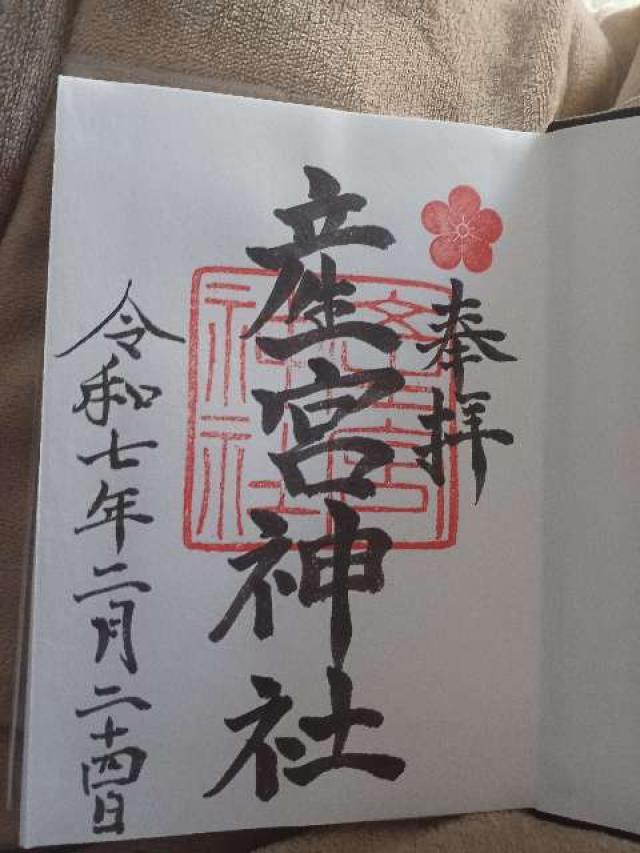 奉拝
産宮神社
令和七年二月二十四日